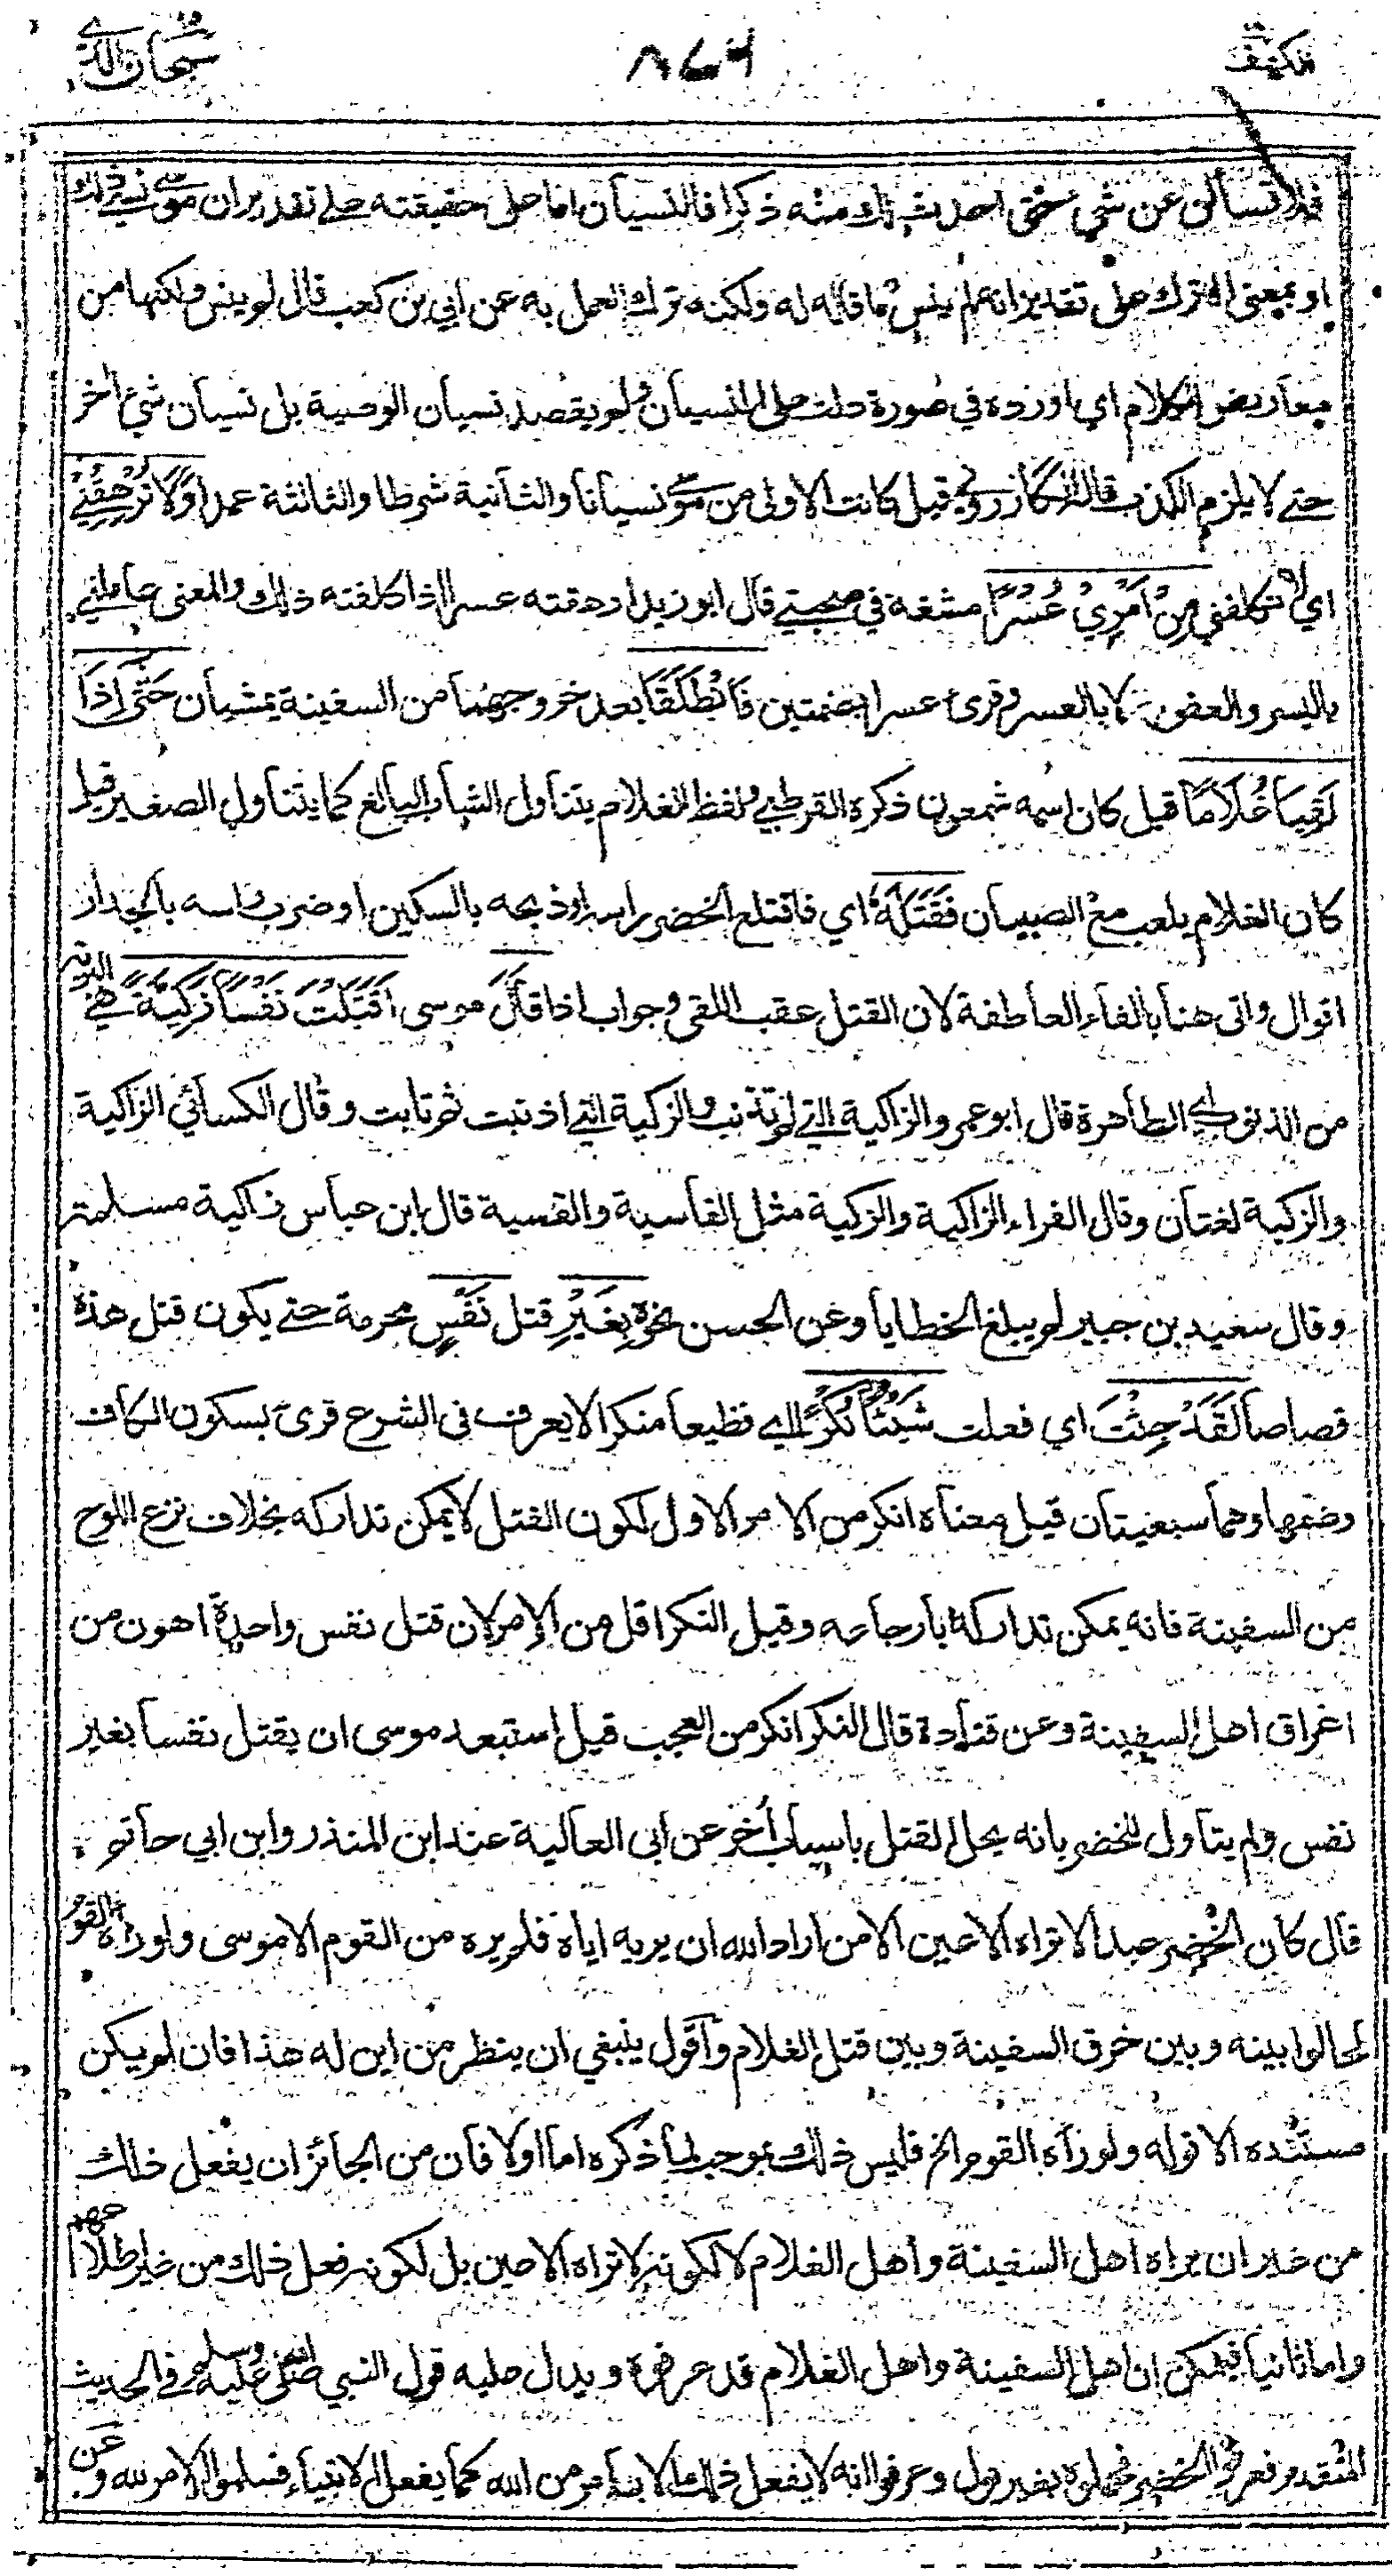 الكهف ٨٦٩ سبحان الذي
فلا تسألني عن شيء حتى احدث لك منه ذكرا فالنسيان اما على حقيقته على تقدير ان موسى نسي ذلك
او بمعنى الترك على تقدير انه لم ينس ما قاله له ولكنه ترك العمل به عن ابي بن كعب قال لم ينس ولكنها من
معاريض الكلام اي اورده في صورة دلت على النسيان ولم يقصد نسيان الوصية بل نسيان شيء اخر
حتى لا يلزم الكذب قاله الكازروني قيل كانت الاولى من موسى نسيانا والثانية شرطا والثالثة عمدا وَلَا تُرْهِقْنِي
اي لا تكلفني مِنْ أَمْرِي عُسْرًا مشقة في صحبتي قال ابو زيد ارهقته عسرا اذا كلفته ذلك والمعنى عاملني
باليسر والعفو لا بالعسر وقرئ عسرا بضمتين فَانْطَلَقَا بعد خروجهما من السفينة يمشيان حَتَّى إِذَا
لَقِيَا غُلَامًا قيل كان اسمه شمعون ذكره القرطبي ولفظ الغلام يتناول الشاب البالغ كما يتناول الصغير قيل
كان الغلام يلعب مع الصبيان فَقَتَلَهُ اي فاقتلع الخضر راسه او ذبحه بالسكين او ضرب راسه بالجدار
اقوال واتى هنا بالفاء العاطفة لان القتل عقب اللقي وجواب اذا قَالَ موسى أَقَتَلْتَ نَفْسًا زَكِيَّةً هي البريئة
من الذنوب اي الطاهرة قال ابو عمرو الزاكية التي لم تذنب والزكية التي اذنبت ثم تابت وقال الكسائي الزاكية
والزكية لغتان وقال الفراء الزاكية والزكية مثل القاسية والقسية قال ابن عباس زاكية مسلمة
وقال سعيد بن جبير لم يبلغ الخطايا وعن الحسن نحوه بِغَيْرِ قتل نَفْسٍ محرمة حتى يكون قتل هذه
قصاصا لَقَدْ جِئْتَ اي فعلت شَيْئًا نُكْرًا اي فظيعا منكرا لا يعرف في الشرع قرئ بسكون الكاف
وضمها وهما سبعيتان قيل معناه انكر من الامر الاول لكون القتل لا يمكن تداركه بخلاف نزع اللوح
من السفينة فانه يمكن تداركه بارجاعه وقيل النكر اقل من الامر لان قتل نفس واحدة اهون من
اغراق اهل السفينة وعن قتادة قال النكر انكر من العجب قيل استبعد موسى ان يقتل نفسا بغير
نفس ولم يتاول للخضر بانه يحل القتل باسباب أخر عن ابي العالية عند ابن المنذر وابن ابي حاتم
قال كان الخضر عبدا لا تراه الاعين الا من اراد الله ان يريه اياه فلم يره من القوم الا موسى ولو رأه القوم
لحالوا بينه وبين خرق السفينة وبين قتل الغلام واقول ينبغي ان ينظر من اين له هذا فان لم يكن
مستنده الا قوله ولو رأه القوم الخ فليس ذلك بموجب لما ذكره اما اولا فان من الجائز ان يفعل ذلك
من غير ان يراه اهل السفينة واهل الغلام لا لكونه لا تراه الاعين بل لكونه فعل ذلك من غير اطلاعهم
واما ثانيا فيمكن ان اهل السفينة واهل الغلام قد عرفوه ويدل عليه قول النبي صلى الله عليه وسلم في الحديث
المتقدم فعرفوا الخضر فحملوه بغير نول وعرفوا انه لا يفعل ذلك الا بامر من الله كما يفعل الانبياء فسلموا الامر لله وعن